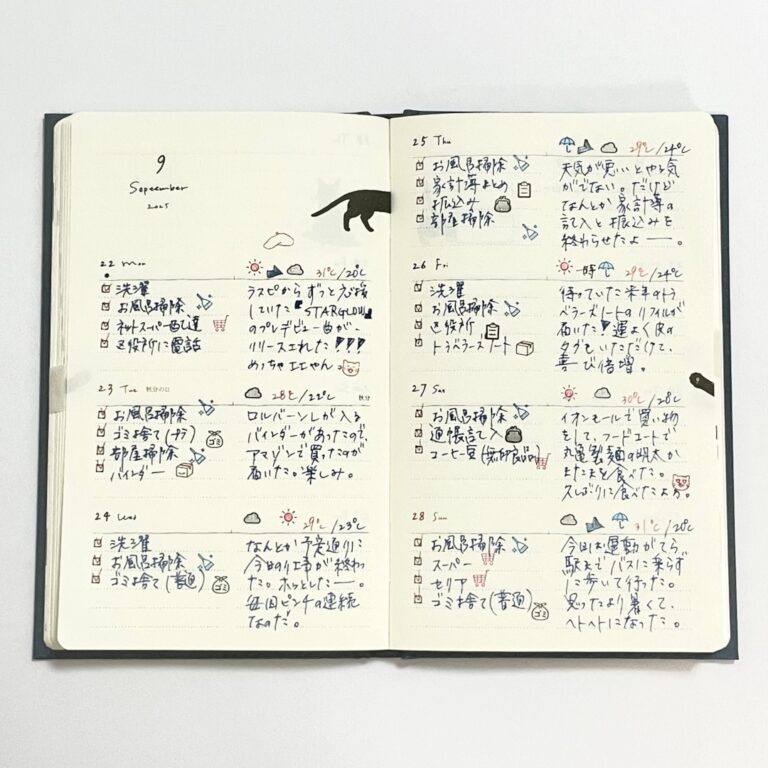 9
September
2025
22 Mon
31℃/20℃
洗濯
お風呂掃除
ネットスーパー
区役所に電話
ラスピからずっと応援
していた『STARGLOW』
のプレデビュー曲が、
リリースされた!!!
めっちゃエエやん
23 Tue 秋分の日
28℃/22℃
秋分
お風呂掃除
ゴミ捨て(プラ)
部屋掃除
バインダー
ロルバーンLが入る
バインダーがあったので、
アマゾンで買ったのが
届いた。楽しみ。
24 Wed
29℃/23℃
洗濯
お風呂掃除
ゴミ捨て(普通)
ゴミ
なんとか予定通りに
今日の仕事が終わっ
た。ホッとしたー。
毎回ピンチの連続
なのだ。
25 Thu
29℃/24℃
お風呂掃除
家計簿まとめ
振込み
部屋掃除
天気が悪いとやる気
がでない。だけど
なんとか家計簿の
記入と振込みを
終わらせたよー。
26 Fri
一時
29℃/24℃
洗濯
お風呂掃除
区役所
トラベラーズノート
待っていた来年のトラ
ベラーズノートのリフィルが
届いた!運よく皮の
タグもいただけて、
喜び倍増。
27 Sat
30℃/28℃
お風呂掃除
通帳記入
コーヒー豆(無印良品)
イオンモールで買い物
をして、フードコートで
丸亀製麺の明太か
またまを食べた。
久しぶりに食べたよぉ。
28 Sun
31℃/20℃
お風呂掃除
スーパー
セリア
ゴミ捨て(普通)
ゴミ
今日は運動がてら
駅までバスに乗らず
に歩いて行った。
思ったより暑くて、
ヘトヘトになった。